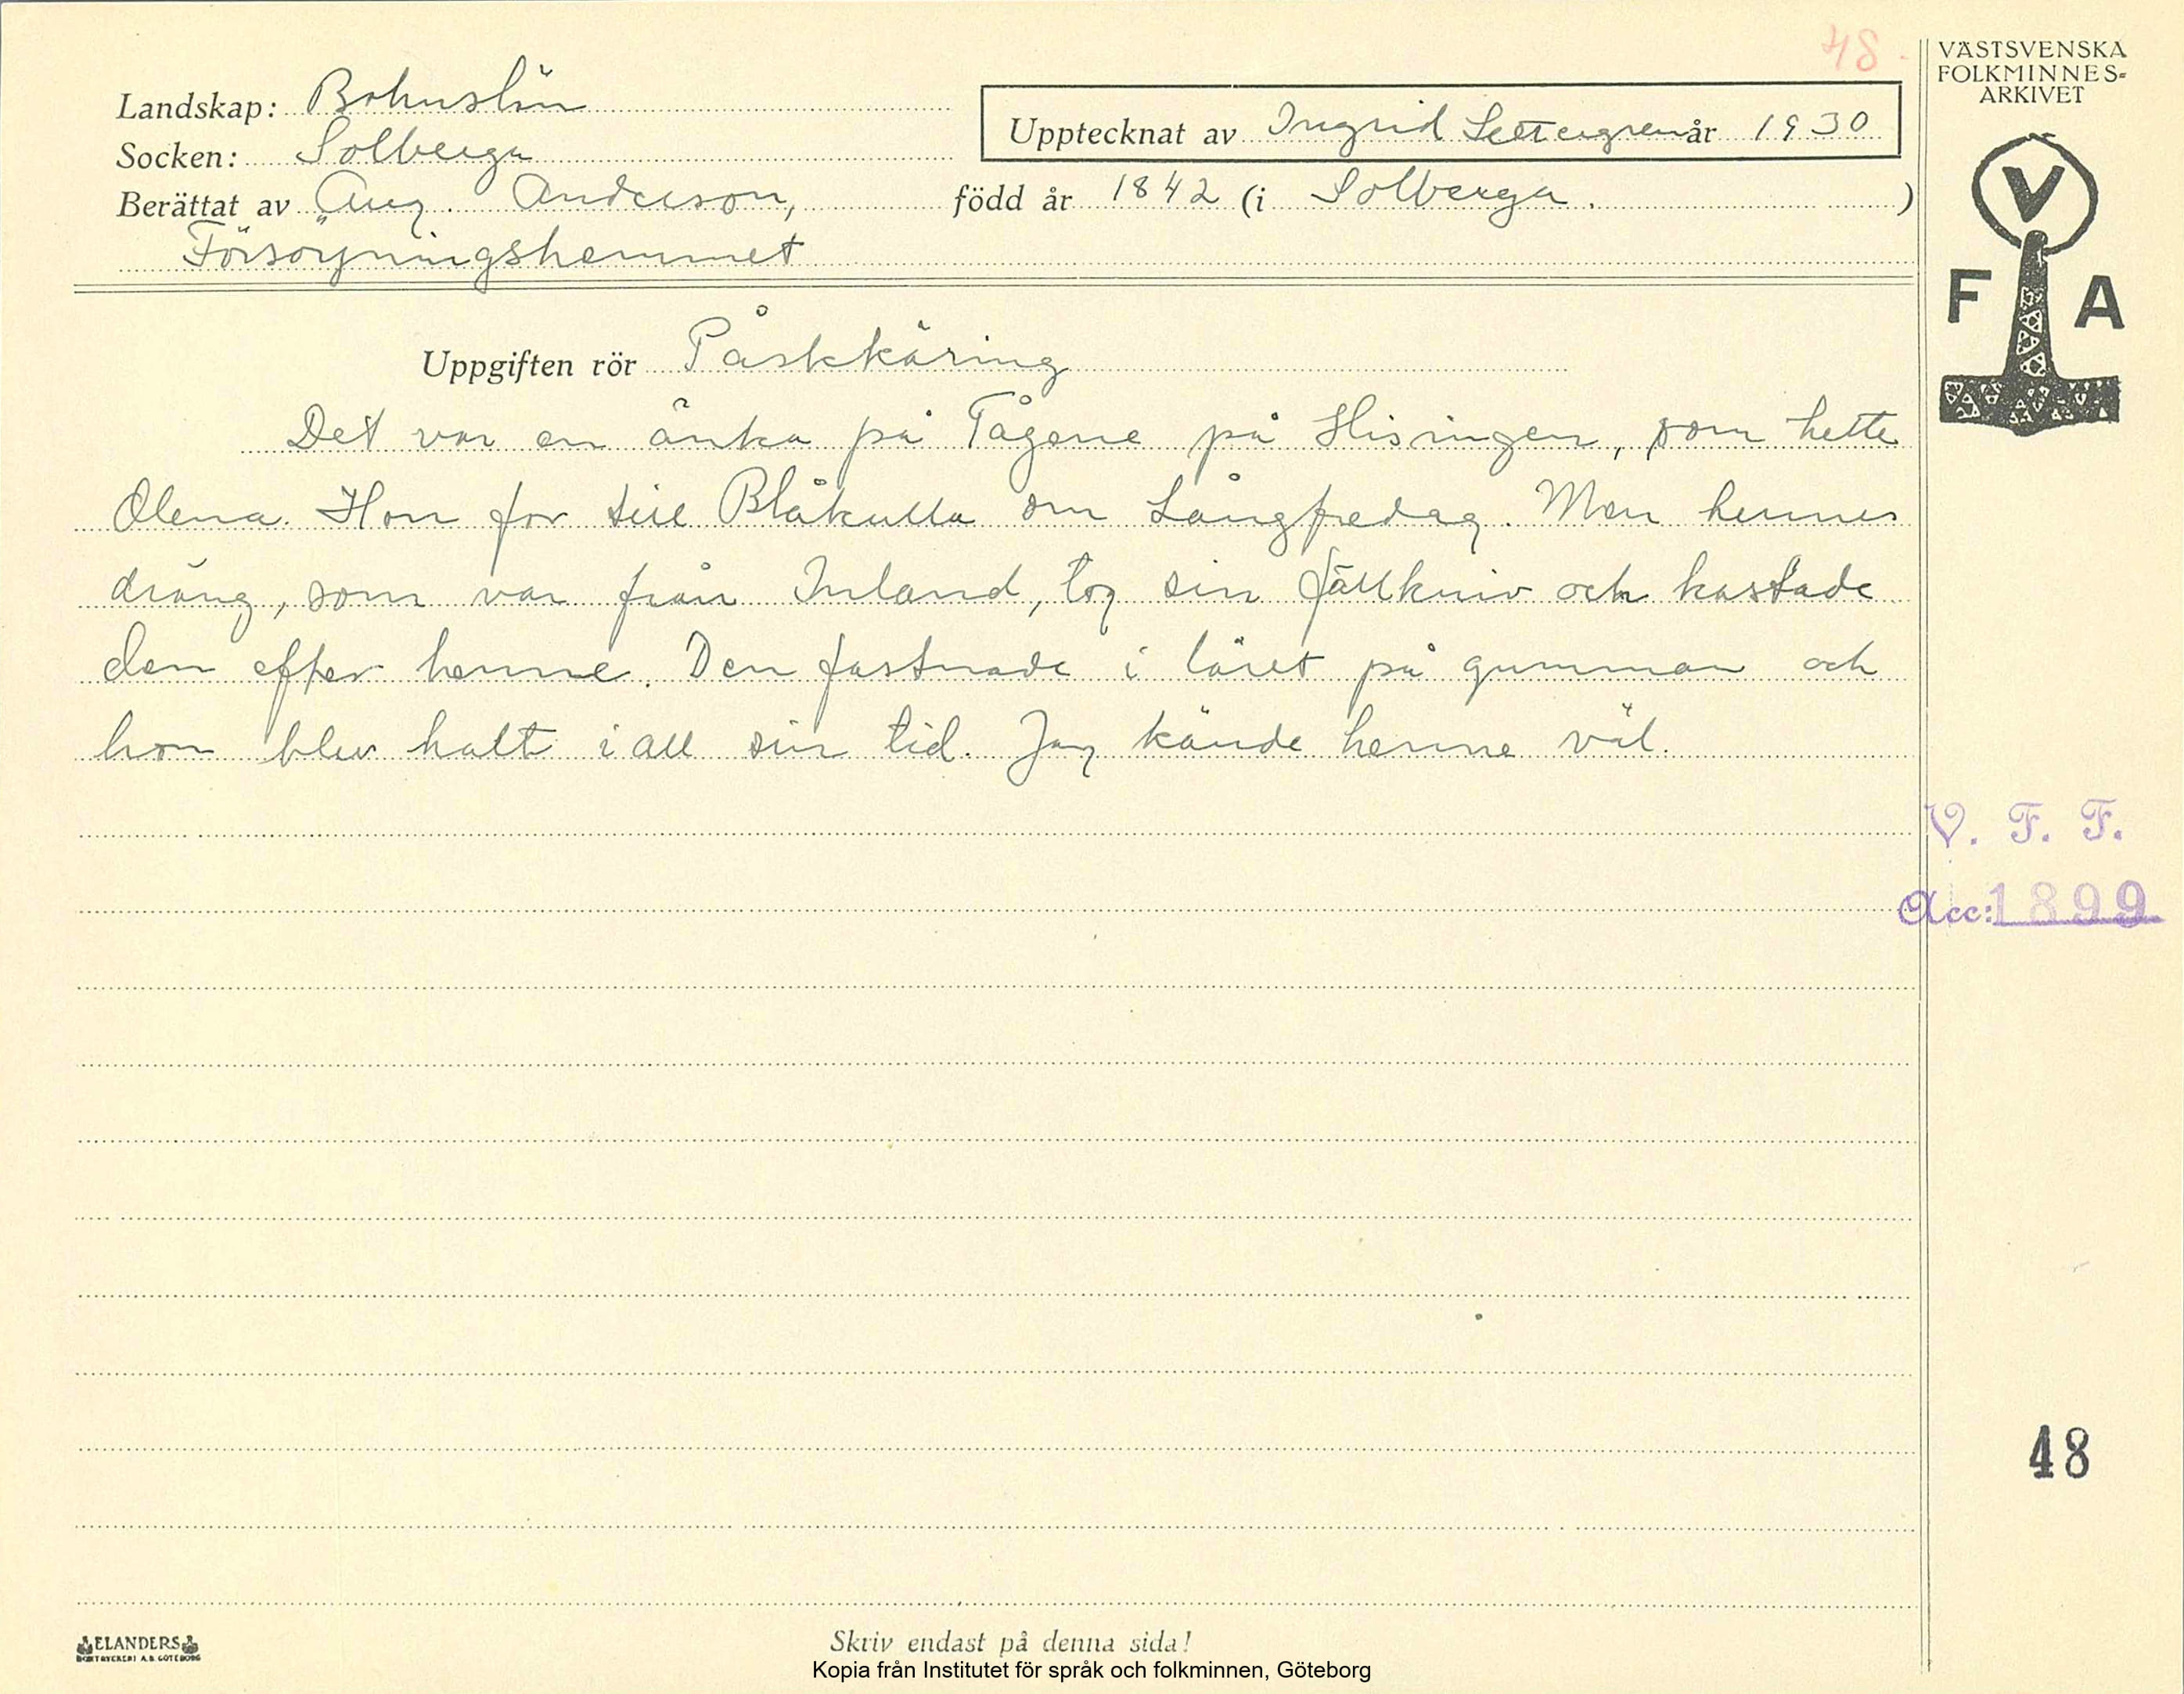 48.
VÄSTSVENSKA
FOLKMINNES-
ARKIVET
Landskap: Bohuslän
Upptecknat av Ingrid Settergren år 1930
Socken: Solberga
Berättat av Aug. Anderson, född år 1842 (i Solberga. )
Försörjningshemmet
V
F A
Uppgiften rör Påskkäring
Det var en änka på Tågene på Hisingen, som hette
Olena. Hon for till Blåkulla om Långfredag. Men hennes
dräng, som var från Inland, tog sin fällkniv och kastade
den efter henne. Den fastnade i låret på gumman och
hon blev halt i all sin tid. Jag kände henne väl.
V. F. F.
Acc: 1899
48
ELANDERS
BOKTRYCKERI A.B. GÖTEBORG
Skriv endast på denna sida!
Kopia från Institutet för språk och folkminnen, Göteborg